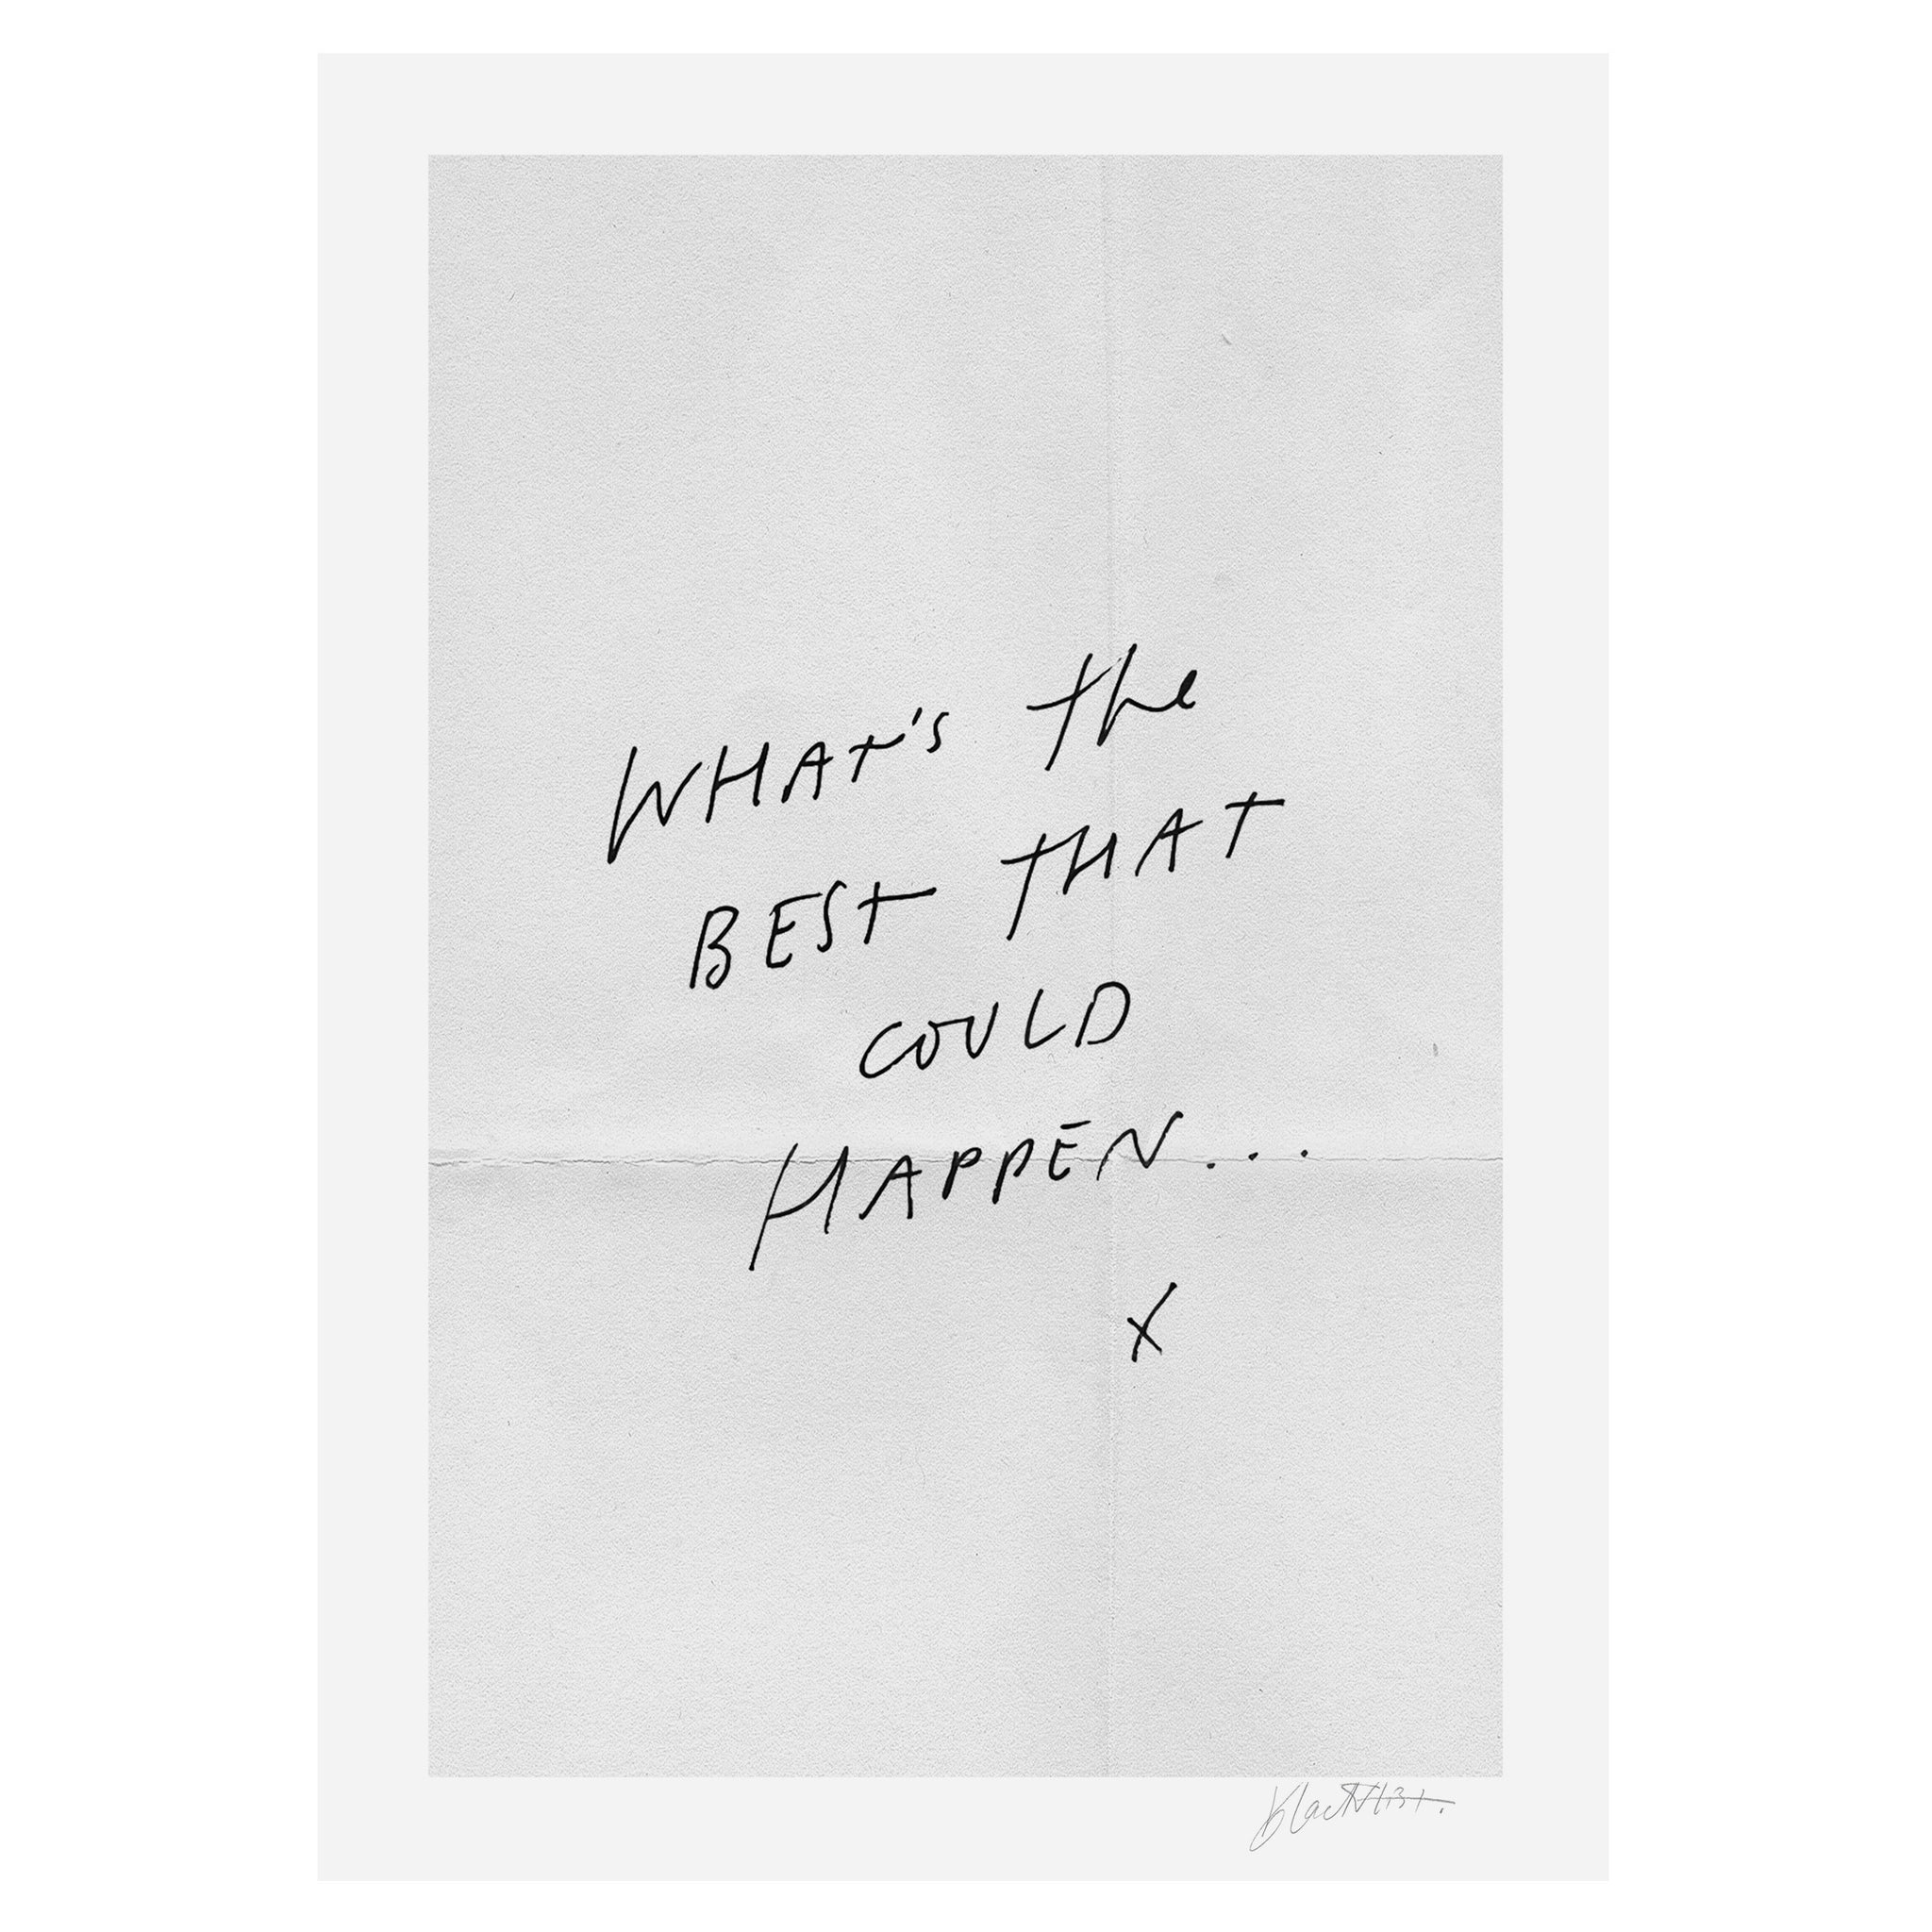 WHAT's the
BEST THAT
COULD
HAPPEN...
x